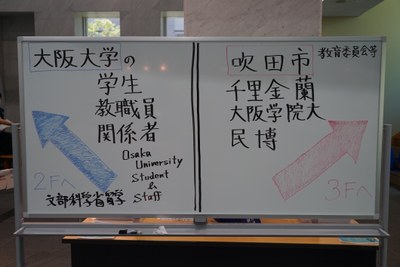 大阪大学の
学生
教職員
関係者
Osaka
University
Student
&
Staff
2Fへ
文部科学省留学
吹田市
教育委員会等
千里金蘭
大阪学院大
民博
3Fへ